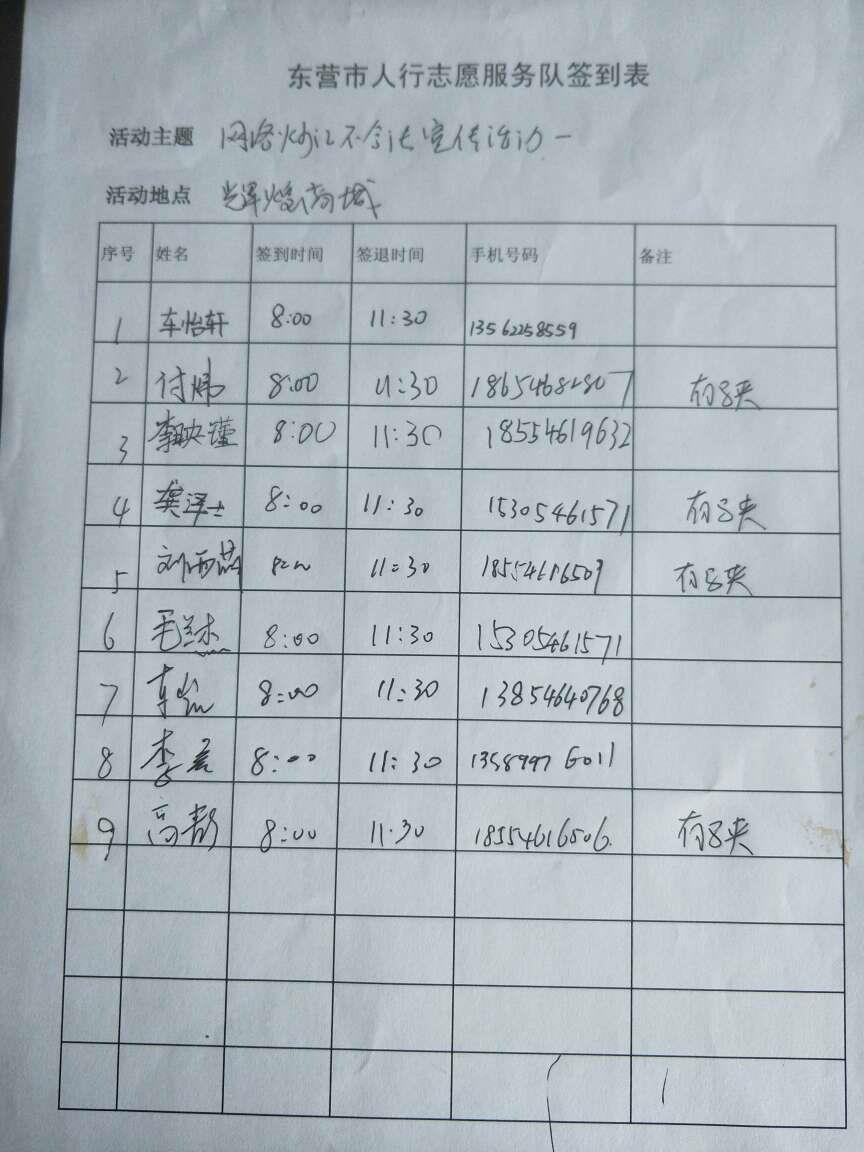 东营市人行志愿服务队签到表
活动主题 网络炒汇不合法宣传活动一
活动地点 辉煌商城
序号 姓名 签到时间 签退时间 手机号码 备注
1 车怡轩 8:00 11:30 13562258559
2 付炜 8:00 11:30 18654682807 有8夹
3 李映瑾 8:00 11:30 18554619632
4 龚泽士 8:00 11:30 15305461571 有8夹
5 刘雨 11:30 18554616509 有8夹
6 毛兰杰 8:00 11:30 15305461571
7 车 8:00 11:30 13854640768
8 李 8:00 11:30 13589976011
9 高 8:00 11:30 18554616506 有8夹